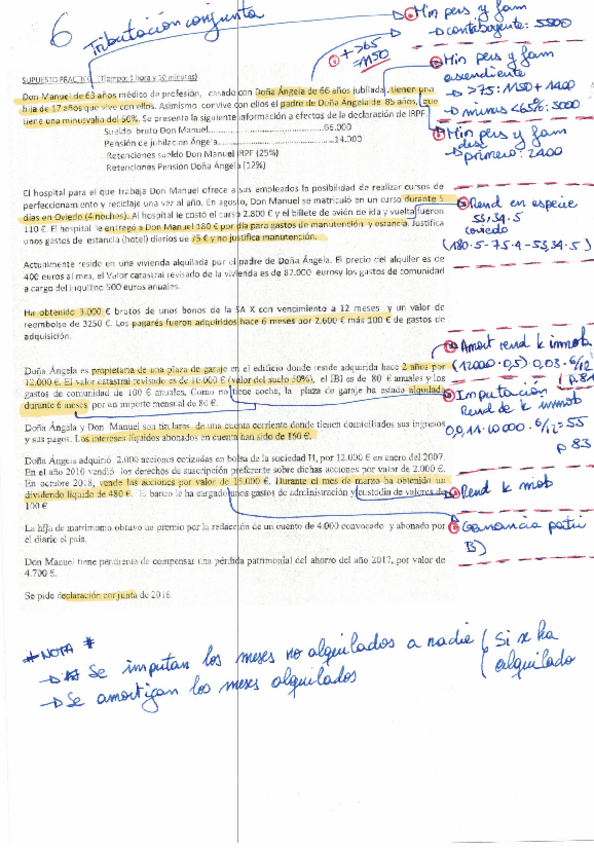 6 Tributación conjunta
Min pers y fam
→ contribuyente: 5500
+ >65
= 1150
Min pers y fam
ascendiente
→ >75: 1150 + 1400
→ minus <65%: 3000
Min pers y fam
desc
→ primero: 2400
SUPUESTO PRACTICO (Tiempo: 1 hora y 10 minutos)
Don Manuel de 63 años médico de profesión, casado con Doña Ángela de 66 años jubilada, tienen una
hija de 17 años que vive con ellos. Asimismo convive con ellos el padre de Doña Ángela de 85 años, que
tiene una minusvalía del 50%. Se presenta la siguiente información a efectos de la declaración de IRPF.
Sueldo bruto Don Manuel..................66.000
Pensión de jubilación Ángela..................14.000
Retenciones sueldo Don Manuel IRPF (25%)
Retenciones Pensión Doña Ángela (12%)
El hospital para el que trabaja Don Manuel ofrece a sus empleados la posibilidad de realizar cursos de
perfeccionamiento y reciclaje una vez al año. En agosto, Don Manuel se matriculó en un curso durante 5
días en Oviedo (4 noches). Al hospital le costó el curso 2.800 € y el billete de avión de ida y vuelta fueron
110 €. El hospital le entregó a Don Manuel 180 € por día para gastos de manutención y estancia. Justifica
unos gastos de estancia (hotel) diarios de 75 € y no justifica manutención.
Rend en especie
53,34·5
Oviedo
(180·5-75·4-53,34·5)
Actualmente reside en una vivienda alquilada por el padre de Doña Ángela. El precio del alquiler es de
400 euros al mes, el Valor catastral revisado de la vivienda es de 87.000 euros y los gastos de comunidad
a cargo del inquilino 500 euros anuales.
Ha obtenido 3.000 € brutos de unos bonos de la SA X con vencimiento a 12 meses y un valor de
reembolso de 3250 €. Los pagarés fueron adquiridos hace 6 meses por 2.600 € más 100 € de gastos de
adquisición.
Amort rend k inmob
(12000·0,5)·0,03·6/12
p.81
Doña Ángela es propietaria de una plaza de garaje en el edificio donde reside adquirida hace 2 años por
12.000 €. El valor catastral revisado es de 10.000 € (valor del suelo 50%), el IBI es de 80 € anuales y los
gastos de comunidad de 100 € anuales. Como no tiene coche, la plaza de garaje ha estado alquilada
durante 6 meses por un importe mensual de 80 €.
Imputación
Rend de k inmob
0,011·10000·6/12=55
p 83
Doña Ángela y Don Manuel son titulares de una cuenta corriente donde tienen domiciliados sus ingresos
y sus pagos. Los intereses líquidos abonados en cuenta han sido de 160 €.
Doña Ángela adquirió 2.000 acciones cotizadas en bolsa de la sociedad H, por 12.000 € en enero del 2007.
En el año 2010 vendió los derechos de suscripción preferente sobre dichas acciones por valor de 2.000 €.
En octubre 2018, vende las acciones por valor de 15.000 €. Durante el mes de marzo ha obtenido un
dividendo líquido de 480 €. El banco le ha cargado unos gastos de administración y custodia de valores de
100 €
Rend k mob
La hija de matrimonio obtuvo un premio por la redacción de un cuento de 4.000 convocado y abonado por
el diario el país.
Ganancia patri
B)
Don Manuel tiene pendiente de compensar una pérdida patrimonial del ahorro del año 2017, por valor de
4.700 €.
Se pide declaración conjunta de 2018.
* NOTA *
→ Se imputan los meses no alquilados a nadie (Si se ha
alquilado
→ Se amortizan los meses alquilados